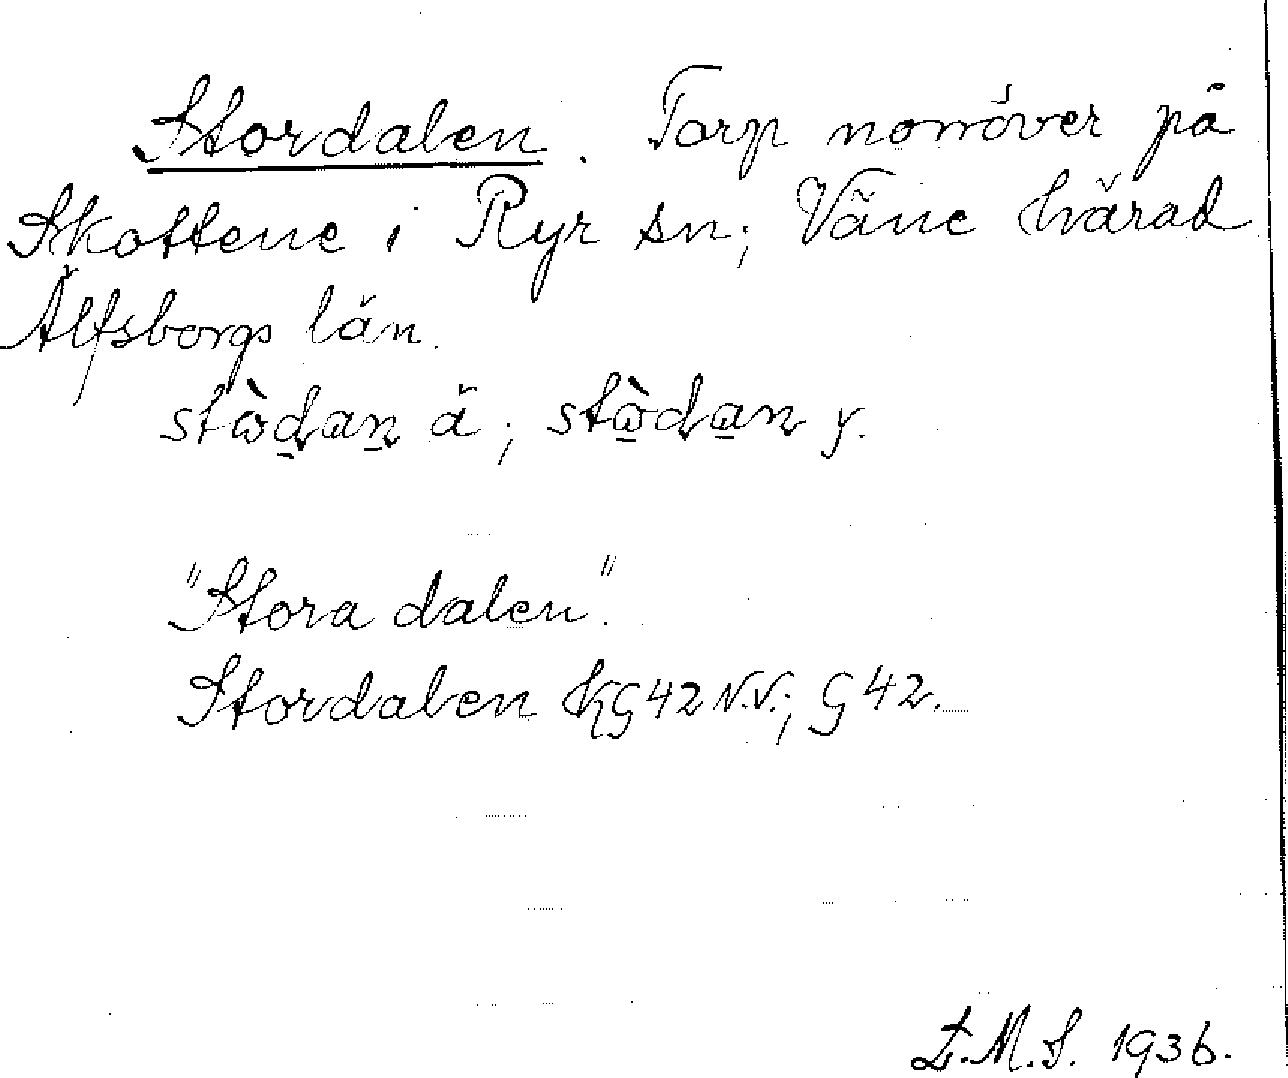 Stordalen. Torp norröver på
Skottene i Ryr sn; Väne härad
Älfsborgs län.
stòdan ä; stòdan y.
"Stora dalen".
Stordalen HG42 N.V.; G 42.
L.M.S. 1936.